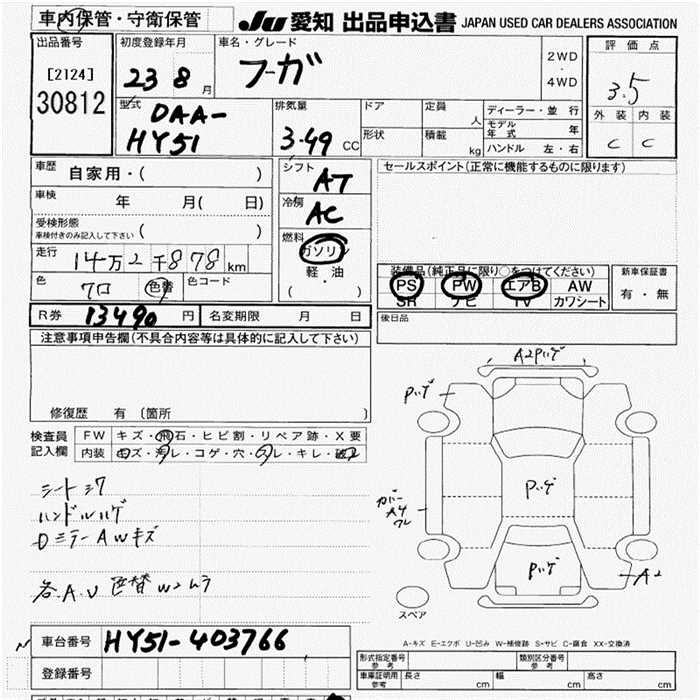 車内保管・守衛保管
JU 愛知 出品申込書 JAPAN USED CAR DEALERS ASSOCIATION
出品番号
[2124]
30812
初度登録年月
23 8 月
車名・グレード
フーガ
2WD
・
4WD
評価点
3.5
外装 内装
C C
型式
DAA-
HY51
排気量
3.49 CC
ドア
形状
定員
人
積載
kg
ディーラー・並行
モデル年式 年
ハンドル 左・右
車歴
自家用・( )
車検
年 月( 日)
受検形態
車検付きのみ記入して下さい ( )
走行
14万2千878 km
色
クロ
色替
色コード
シフト
AT
冷房
AC
燃料
ガソリン
軽・油
( ・ )
セールスポイント(正常に機能するものに限ります)
装備品(純正品に限り○をつけてください)
PS PW エアB AW
SR ナビ TV カワシート
新車保証書
有・無
後日品
R券 13490 円
名変期限 月 日
注意事項申告欄(不具合内容等は具体的に記入して下さい)
修復歴 有 〔箇所 〕
検査員
記入欄
FW キズ・飛石・ヒビ割・リペア跡・X要
内装 キズ・汚レ・コゲ・穴・スレ・キレ・破
シートシワ
ハンドルハゲ
DミラーAWキズ
各A.U 色替W2ムラ
A2Pハゲ
Pハゲ
Pハゲ
カバー
A4
ワレ
Pハゲ
A2
スペア
A-キズ E-エクボ U-凹み W-補修跡 S-サビ C-腐食 XX-交換済
車台番号 HY51-403766
登録番号
形式指定番号
参考
類別区分番号
参考
車庫証明用
参考
長さ cm
幅 cm
高さ cm